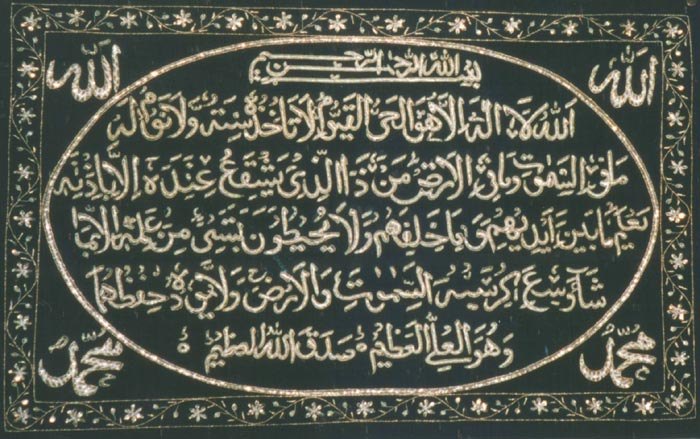 الله
الله
بسم الله الرحمن الرحيم
الله لا اله الا هو الحي القيوم لا تاخذه سنة ولا نوم له
ما في السموت وما في الارض من ذا الذى يشفع عنده الا باذنه
يعلم ما بين ايديهم وما خلفهم ولا يحيطون بشىء من علمه الا بما
شاء وسع كرسيه السموت والارض ولا يوده حفظهما
وهو العلى العظيم صدق الله العظيم
محمد
محمد